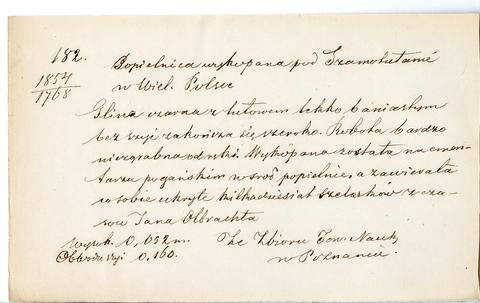 182.
1854
1768
Popielnica wykopana pod Szamotułami
w Wiel. Polsce
Glina czarna z tułowem lekko baniastym
bez szyi zakończa się szeroko. Robota bardzo
niezgrabna od ręki. Wykopana została na cmen-
tarzu pogańskim wśród popielnic, a zawierała
w sobie ukryte kilkadziesiat szelążków z cza-
sów Jana Olbrachta
Wysok. 0,052 m.
Obwodu szyi 0.160.
Ze Zbioru Tow. Nauk
w Poznaniu.